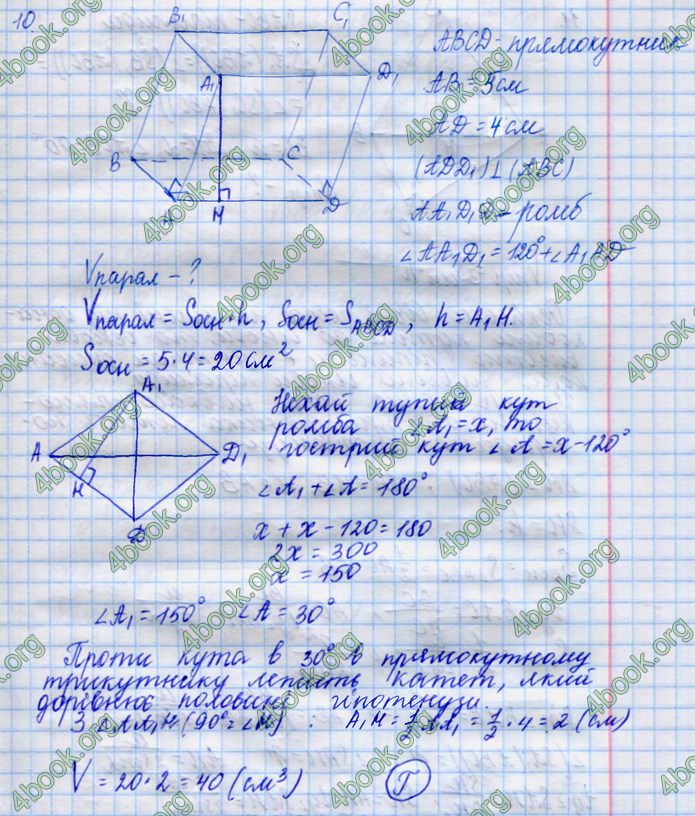 10
B₁
C₁
A₁
D₁
B
C
A
H
D
ABCD - прямокутник
AB = 5см
AD = 4см
(ADD₁)⊥(ABC)
AA₁D₁D - ромб
∠AA₁D₁ = 120° + ∠A₁AD
Vпарал - ?
Vпарал = Sосн·h, Sосн = S_ABCD, h = A₁H.
Sосн = 5·4 = 20см²
A₁
A
D₁
H
D
Нехай тупий кут
ромба ∠A₁ = x, то
гострий кут ∠A = x - 120°
∠A₁ + ∠A = 180°
x + x - 120 = 180
2x = 300
x = 150
∠A₁ = 150° ∠A = 30°
Проти кута в 30° в прямокутному
трикутнику лежить катет, який
дорівнює половині гіпотенузи.
З ∠AA₁H (90° = ∠H) : A₁H = ½AA₁ = ½·4 = 2 (см)
V = 20·2 = 40 (см³) Г
4book.org